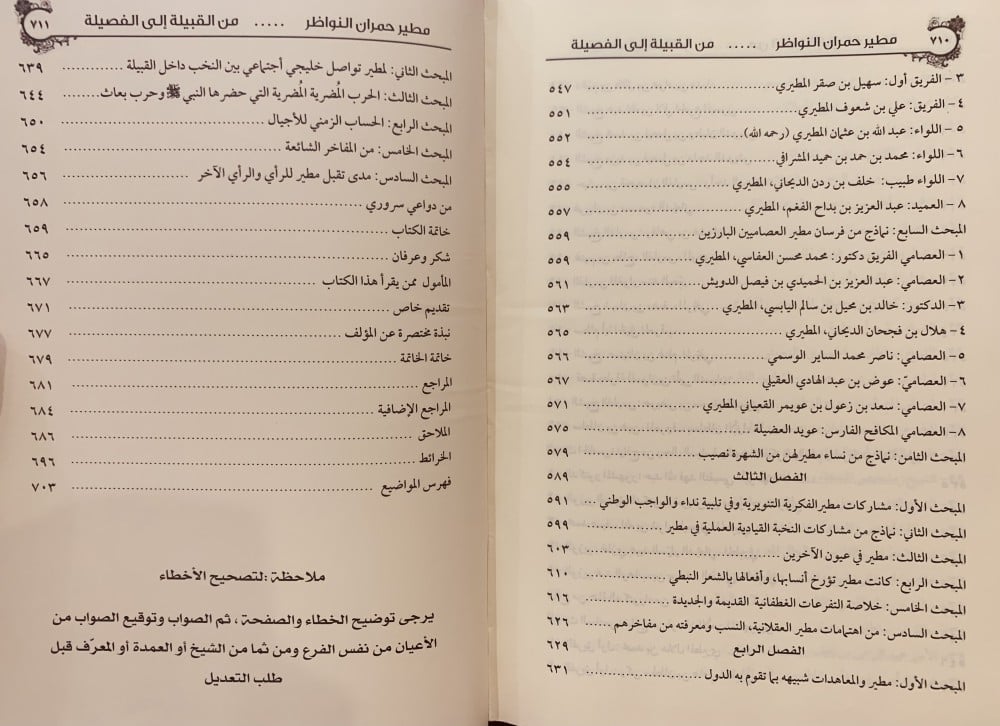 ٧١٠
مطير حمران النواظر ..... من القبيلة إلى الفصيلة
٣- الفريق أول: سهيل بن صقر المطيري ٥٤٧
٤- الفريق: علي بن شعوف المطيري ٥٥١
٥- اللواء: عبد الله بن عثمان المطيري (رحمه الله) ٥٥٢
٦- اللواء: محمد بن حمد بن حميد المشرافي ٥٥٤
٧- اللواء طبيب: خلف بن ردن الديحاني، المطيري ٥٥٥
٨- العميد: عبد العزيز بن بداح الفغم، المطيري ٥٥٧
المبحث السابع: نماذج من فرسان مطير العصاميين البارزين ٥٥٩
١- العصامي الفريق دكتور: محمد محسن العفاسي، المطيري ٥٥٩
٢- العصامي: عبد العزيز بن الحميدي بن فيصل الدويش ٥٦١
٣- الدكتور: خالد بن محيل بن سالم اليابسي، المطيري ٥٦٣
٤- هلال بن فجحان الديحاني، المطيري ٥٦٥
٥- العصامي: ناصر محمد الساير الوسمي ٥٦٦
٦- العصاميّ: عوض بن عبد الهادي العقيلي ٥٦٧
٧- العصامي: سعد بن زعول بن عويمر القعياني المطيري ٥٧١
٨- العصامي المكافح الفارس: عويد العضيلة ٥٧٥
المبحث الثامن: نماذج من نساء مطيرلهن من الشهرة نصيب ٥٧٩
الفصل الثالث ٥٨٩
المبحث الأول: مشاركات مطيرالفكرية التنويرية وفي تلبية نداء والواجب الوطني ٥٩١
المبحث الثاني: نماذج من مشاركات النخبة القيادية العملية في مطير ٥٩٩
المبحث الثالث: مطير في عيون الآخرين ٦٠٣
المبحث الرابع: كانت مطير تؤرخ أنسابها، وأفعالها بالشعر النبطي ٦١٠
المبحث الخامس: خلاصة التفرعات الغطفانية القديمة والجديدة ٦١٦
المبحث السادس: من اهتمامات مطير العقلانية، النسب ومعرفته من مفاخرهم ٦٢٦
الفصل الرابع ٦٢٩
المبحث الأول: مطير والمعاهدات شبيهه بما تقوم به الدول ٦٣١
٧١١
مطير حمران النواظر ..... من القبيلة إلى الفصيلة
المبحث الثاني: لمطير تواصل خليجي أجتماعي بين النخب داخل القبيلة ٦٣٩
المبحث الثالث: الحرب المُضرية المُضرية التي حضرها النبي ﷺ وحرب بعاث ٦٤٤
المبحث الرابع: الحساب الزمني للأجيال ٦٥٠
المبحث الخامس: من المفاخر الشائعة ٦٥٤
المبحث السادس: مدى تقبل مطير للرأي والرأي الآخر ٦٥٦
من دواعي سروري ٦٥٨
خاتمة الكتاب ٦٥٩
شكر وعرفان ٦٦٥
المأمول ممن يقرأ هذا الكتاب ٦٦٧
تقديم خاص ٦٧١
نبذة مختصرة عن المؤلف ٦٧٧
خاتمة الخاتمة ٦٧٩
المراجع ٦٨١
المراجع الإضافية ٦٨٤
الملاحق ٦٨٦
الخرائط ٦٩٦
فهرس المواضيع ٧٠٣
ملاحظة :لتصحيح الأخطاء
يرجى توضيح الخطاء والصفحة ، ثم الصواب وتوقيع الصواب من
الأعيان من نفس الفرع ومن ثما من الشيخ أو العمدة أو المعرّف قبل
طلب التعديل